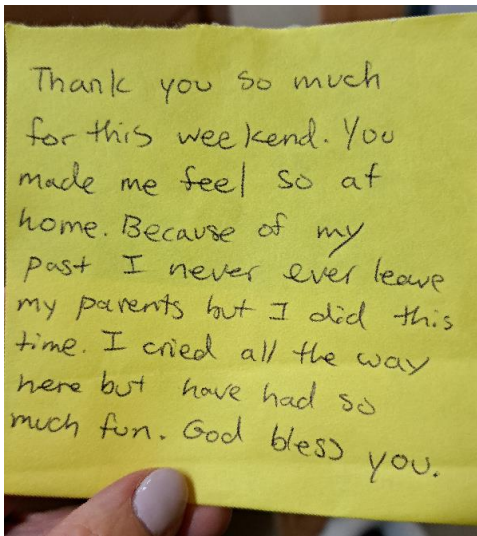 Thank you so much
for this weekend. You
made me feel so at
home. Because of my
past I never ever leave
my parents but I did this
time. I cried all the way
here but have had so
much fun. God bless you.